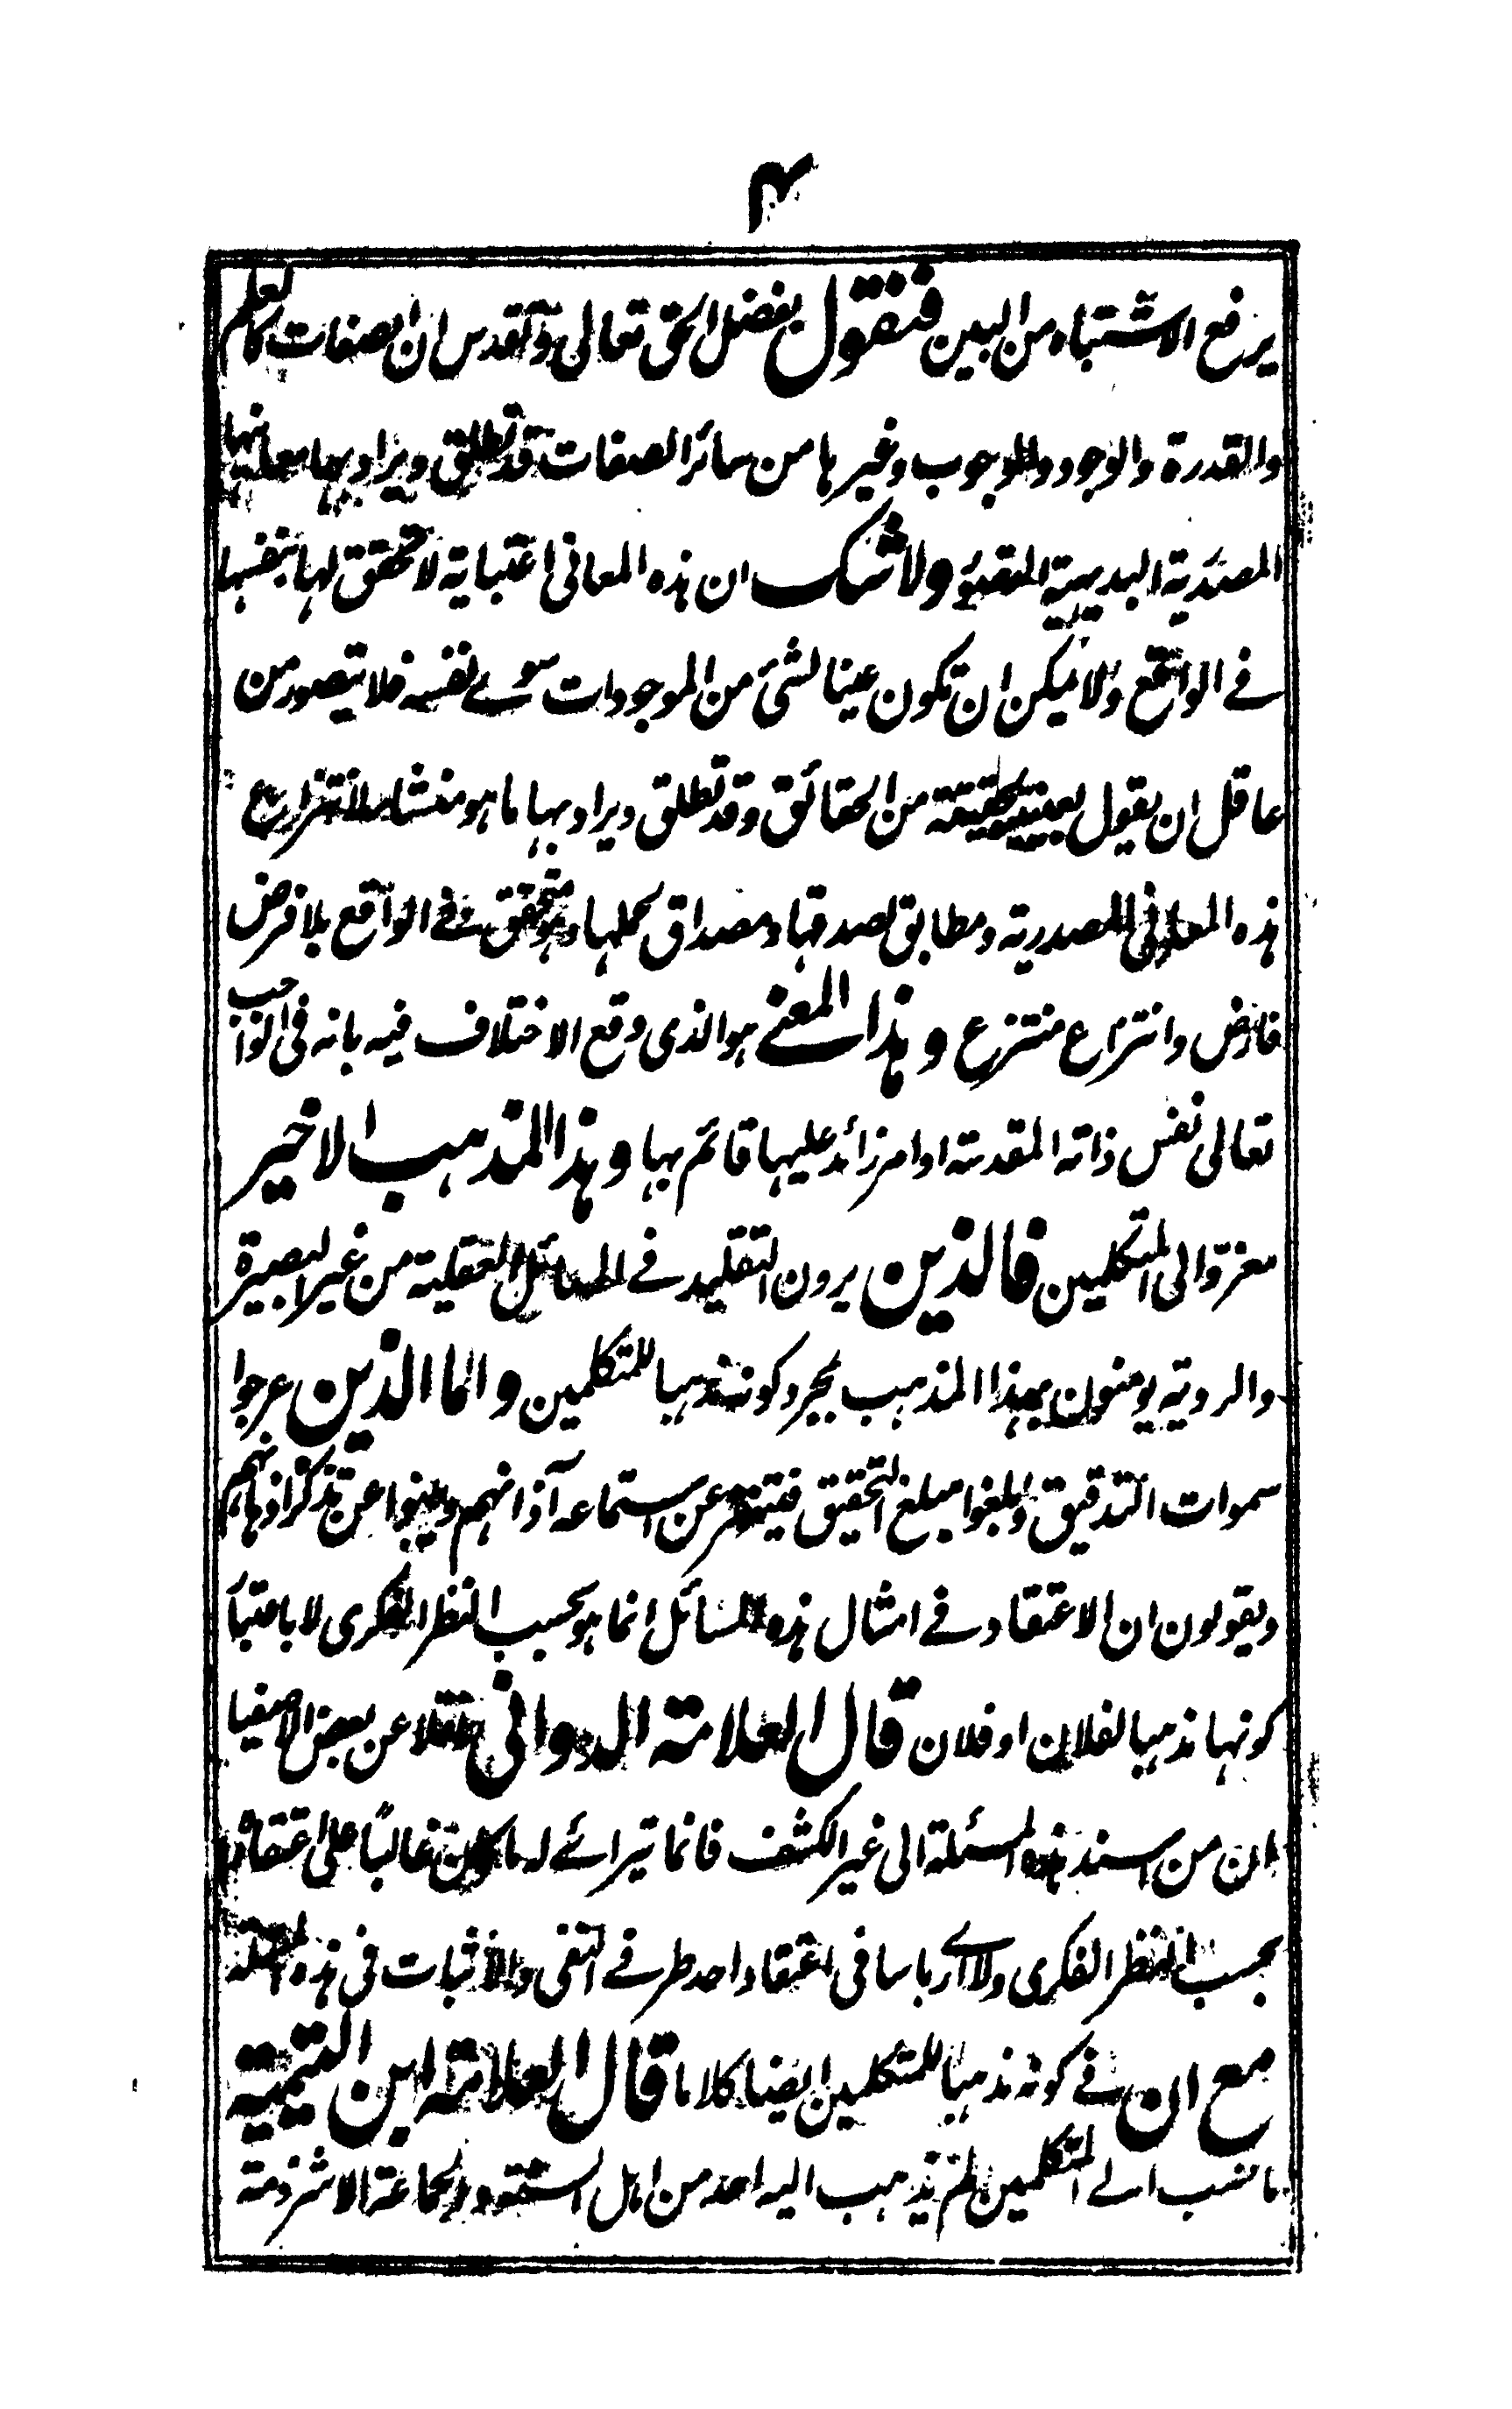 ۴
يرفع الاشتباه من البين فنقول بفضل الحق تعالى وتقدس ان الصفات كالعلم
والقدرة والوجود والوجوب وغيرها من سائر الصفات قد تطلق ويراد بها معانيها
المصدرية البديهية ولا شك ان هذه المعانى اعتبارية لا تحقق لها بنفسها
فے الواقع ولا يمكن ان تكون عينا لشئ من الموجودات سوے نفسه فلا يتصور من
عاقل ان يقول بعينية حقيقة من الحقائق وقد تطلق ويراد بها ما هو منشأ لانتزاع
هذه المعانى المصدرية ومطابق لصدقها ومصداق لحملها وهو متحقق فے الواقع بلا فرض
فارض وانتزاع منتزع وهذا المعنے هو الذى وقع الاختلاف فيه بانه فى الواجب
تعالى نفس ذاته المقدسة او امر زائد عليها قائم بها وهذا المذهب الاخير
معزوّ الى المتكلمين فالذين يرون التقليد فے المسائل العقلية من غير البصيرة
والروية يومنون بهذا المذهب بمجرد كونه مذهبا للمتكلمين واما الذين عرجوا
سموات التدقيق وبلغوا مبلغ التحقيق فيتنفر عن استماعه آذانهم وينبوا عن تذكره اذهانهم
ويقولون ان الاعتقاد فے امثال هذه المسائل انما هو بحسب النظر الفكرى لا باعتبار
كونها مذهبا لفلان او فلان قال العلامة الدوانى نقلا عن بعض الاصفيا
ان من اسند هذه المسئلة الى غير الكشف فانما يتراءے له ما كان غالبًا على اعتقاده
بحسب النظر الفكرى ولا ارے باسا فى اعتقاد احد طرفے النفى والاثبات فى هذه المسئلة
مع ان فے كونه مذهبا للمتكلمين ايضا كلاما قال العلامة ابن التيمية
ما نسب الے المتكلمين لم يذهب اليه احد من اهل السنة والجماعة الا شرذمة